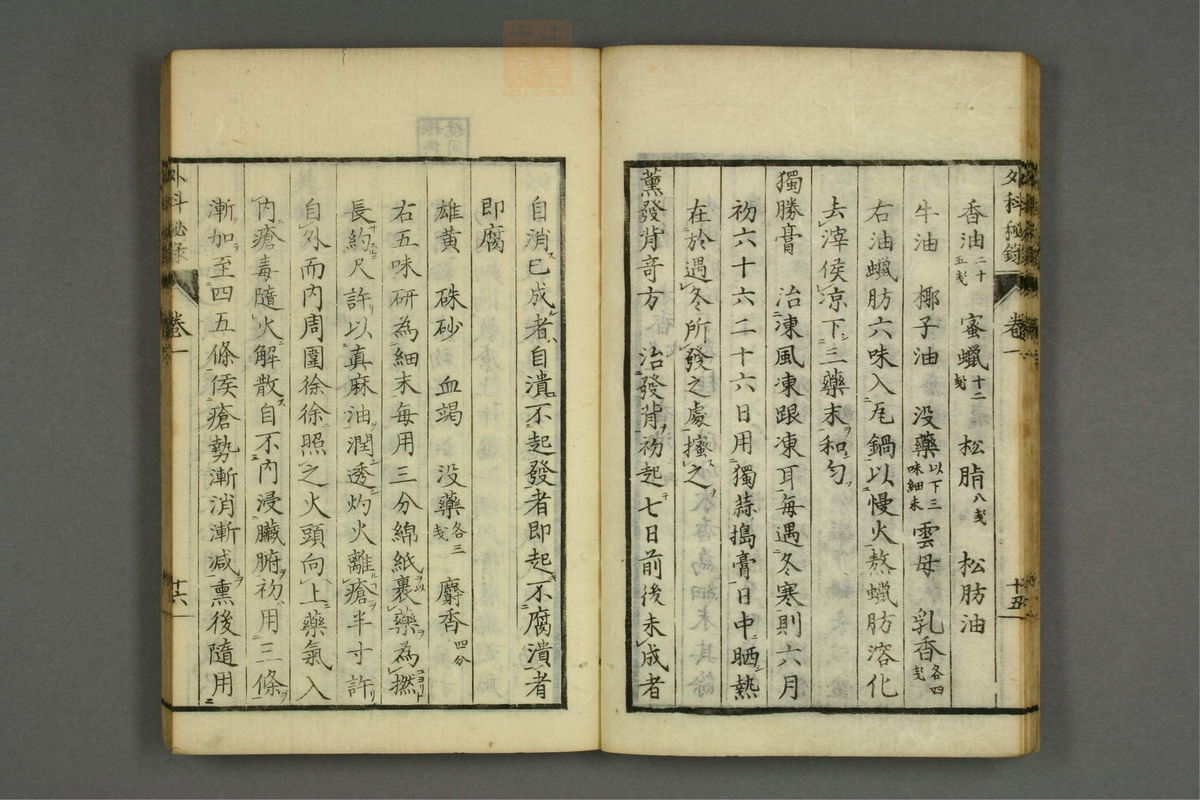 外科秘録 卷一 十五
香油二十五戔 蜜蠟十二戔 松脂八戔 松肪油
牛油 椰子油 没藥以下三味細末 雲母 乳香各四戔
右油蠟肪六味入瓦鍋以慢火熬蠟肪溶化
去滓侯凉下三藥末和匀
獨勝膏 治凍風凍跟凍耳每遇冬寒則六月
初六十六二十六日用獨蒜搗膏日中晒熱
在於遇冬所發之處搽之
薫發背竒方 治發背初起七日前後未成者
自消已成者自潰不起發者即起不腐潰者
即腐
雄黄 硃砂 血竭 没藥各三戔 麝香四分
右五味研為細末每用三分綿紙裹藥為撚
長約尺許以真麻油潤透灼火離瘡半寸許
自外而内周圍徐徐照之火頭向上藥氣入
内瘡毒隨火解散自不内浸臟腑初用三條
漸加至四五條侯瘡勢漸消漸减熏後隨用
外科秘録 卷一 十六